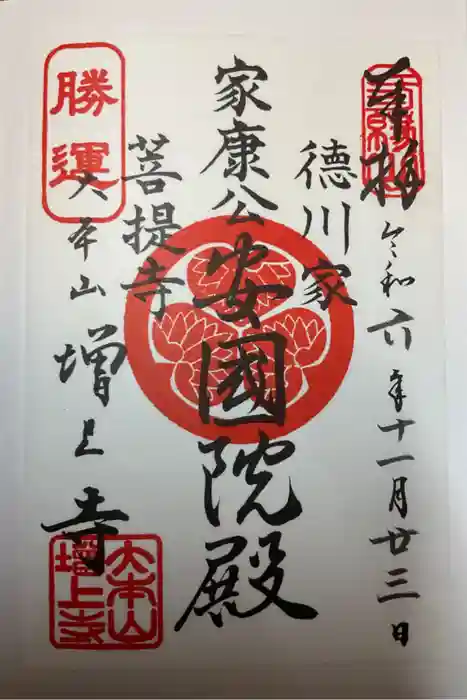 奉拝
令和六年十一月廿三日
徳川家
家康公
安國院殿
菩提寺
勝運
大本山
増上寺
大本山
増上寺